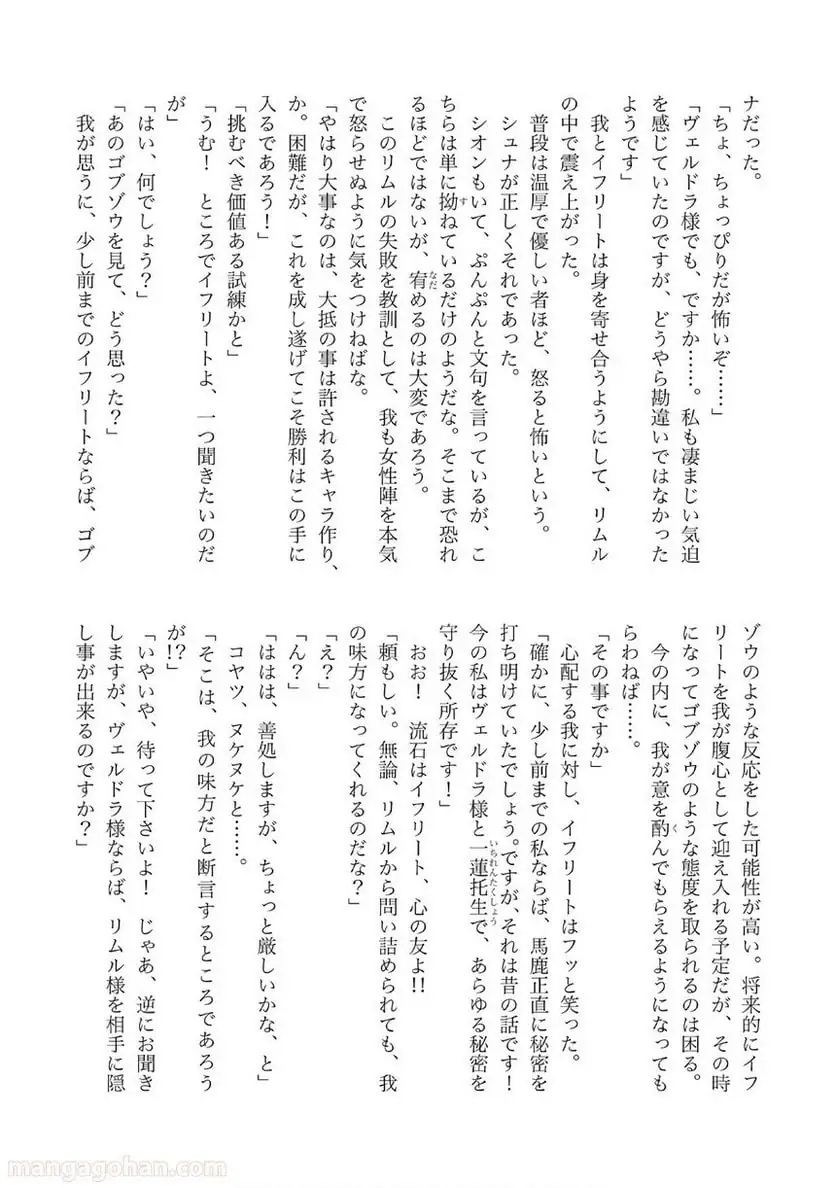 ナだった。
「ちょ、ちょっぴりだが怖いぞ……」
「ヴェルドラ様でも、ですか……。私も凄まじい気迫
を感じていたのですが、どうやら勘違いではなかった
ようです」
我とイフリートは身を寄せ合うようにして、リムル
の中で震え上がった。
普段は温厚で優しい者ほど、怒ると怖いという。
シュナが正しくそれであった。
シオンもいて、ぷんぷんと文句を言っているが、こ
ちらは単に拗ねているだけのようだな。そこまで恐れ
るほどではないが、宥めるのは大変であろう。
このリムルの失敗を教訓として、我も女性陣を本気
で怒らせぬように気をつけねばな。
「やはり大事なのは、大抵の事は許されるキャラ作り、
か。困難だが、これを成し遂げてこそ勝利はこの手に
入るであろう！」
「挑むべき価値ある試練かと」
「うむ！　ところでイフリートよ、一つ聞きたいのだ
が」
「はい、何でしょう？」
「あのゴブゾウを見て、どう思った？」
我が思うに、少し前までのイフリートならば、ゴブ
ゾウのような反応をした可能性が高い。将来的にイフ
リートを我が腹心として迎え入れる予定だが、その時
になってゴブゾウのような態度を取られるのは困る。
今の内に、我が意を酌んでもらえるようになっても
らわねば……。
「その事ですか」
心配する我に対し、イフリートはフッと笑った。
「確かに、少し前までの私ならば、馬鹿正直に秘密を
打ち明けていたでしょう。ですが、それは昔の話です！
今の私はヴェルドラ様と一蓮托生で、あらゆる秘密を
守り抜く所存です！」
おお！　流石はイフリート、心の友よ!!
「頼もしい。無論、リムルから問い詰められても、我
の味方になってくれるのだな？」
「え？」
「ん？」
「ははは、善処しますが、ちょっと厳しいかな、と」
コヤツ、ヌケヌケと……。
「そこは、我の味方だと断言するところであろう
が!?」
「いやいや、待って下さいよ！　じゃあ、逆にお聞き
しますが、ヴェルドラ様ならば、リムル様を相手に隠
し事が出来るのですか？」
mangagohan.com